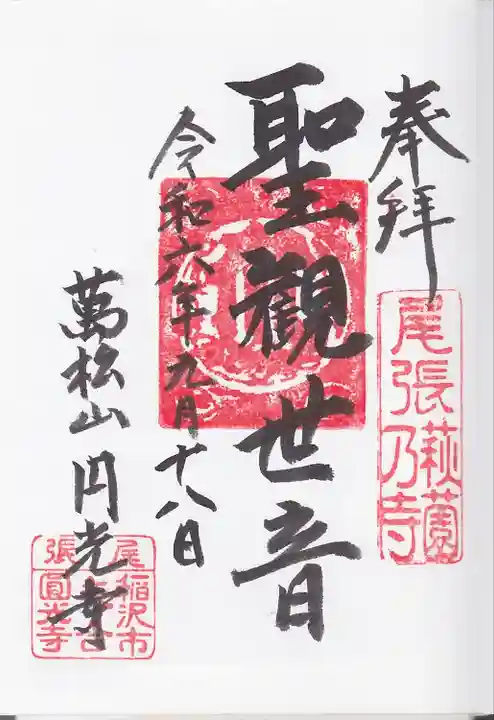 奉拝
尾張
萩薗
乃寺
聖観世音
令和六年九月十八日
萬松山 円光寺
尾張
稲沢市
圓光寺